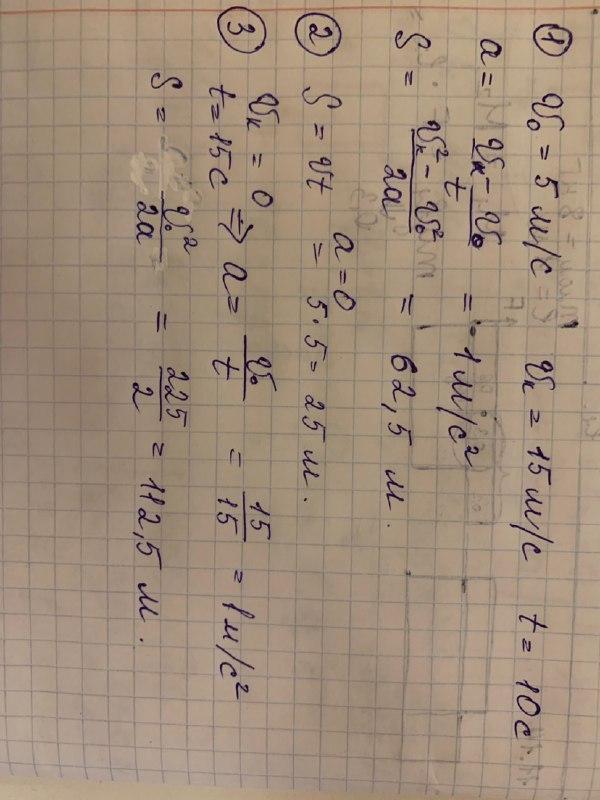 ① V₀ = 5 м/с Vк = 15 м/с t = 10с
a = (Vк - V₀)/t = 1 м/с²
S = (Vк² - V₀²)/2a = 62,5 м.
② a = 0
S = Vt = 5·5 = 25 м.
③ Vк = 0
t = 15с ⇒ a = V₀/t = 15/15 = 1м/с²
S = V₀²/2a = 225/2 = 112,5 м.